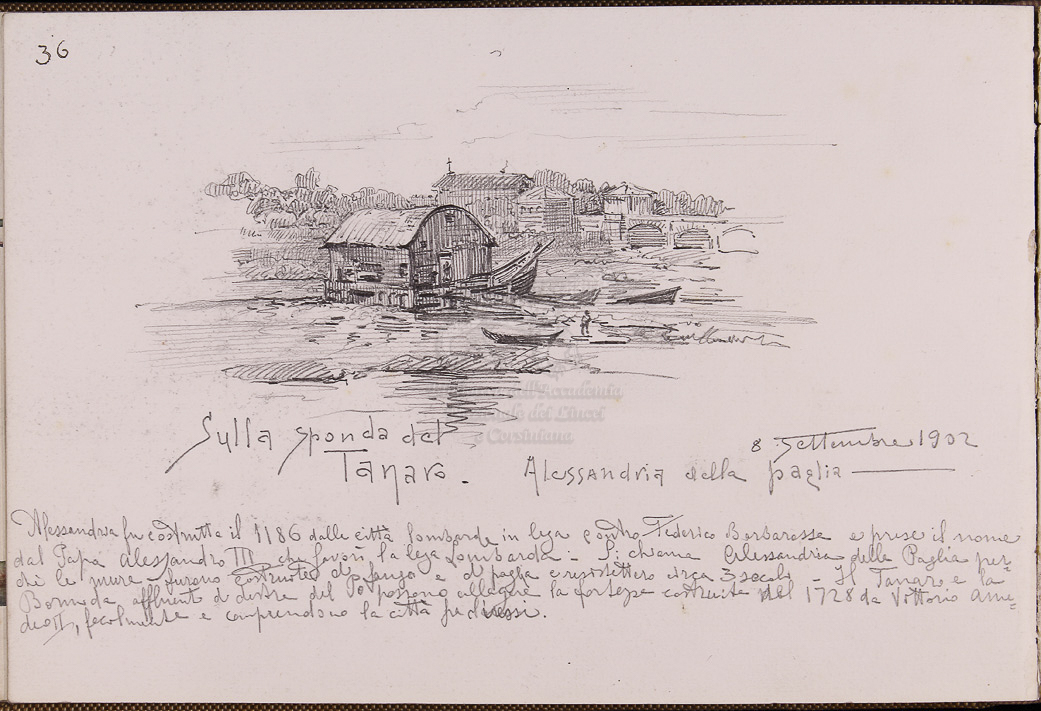 36
Sulla sponda del
Tanaro.
8 Settembre 1902
Alessandria della paglia
Alessandria fu costrutta il 1186 dalle città lombarde in lega contro Federico Barbarossa e prese il nome
dal Papa Alessandro III che favorì la lega Lombarda. Si chiama Alessandria della Paglia per=
chè le mura furono costrutte di fango e di paglia e resistettero circa 3 secoli - Il Tanaro e la
Bormida affluenti di destra del Po possono allagare la fortezza costruita nel 1728 da Vittorio Ame=
deo II, facilmente e comprendono la città fra di essi.
dell'Accademia
dei Lincei
e Corsiniana